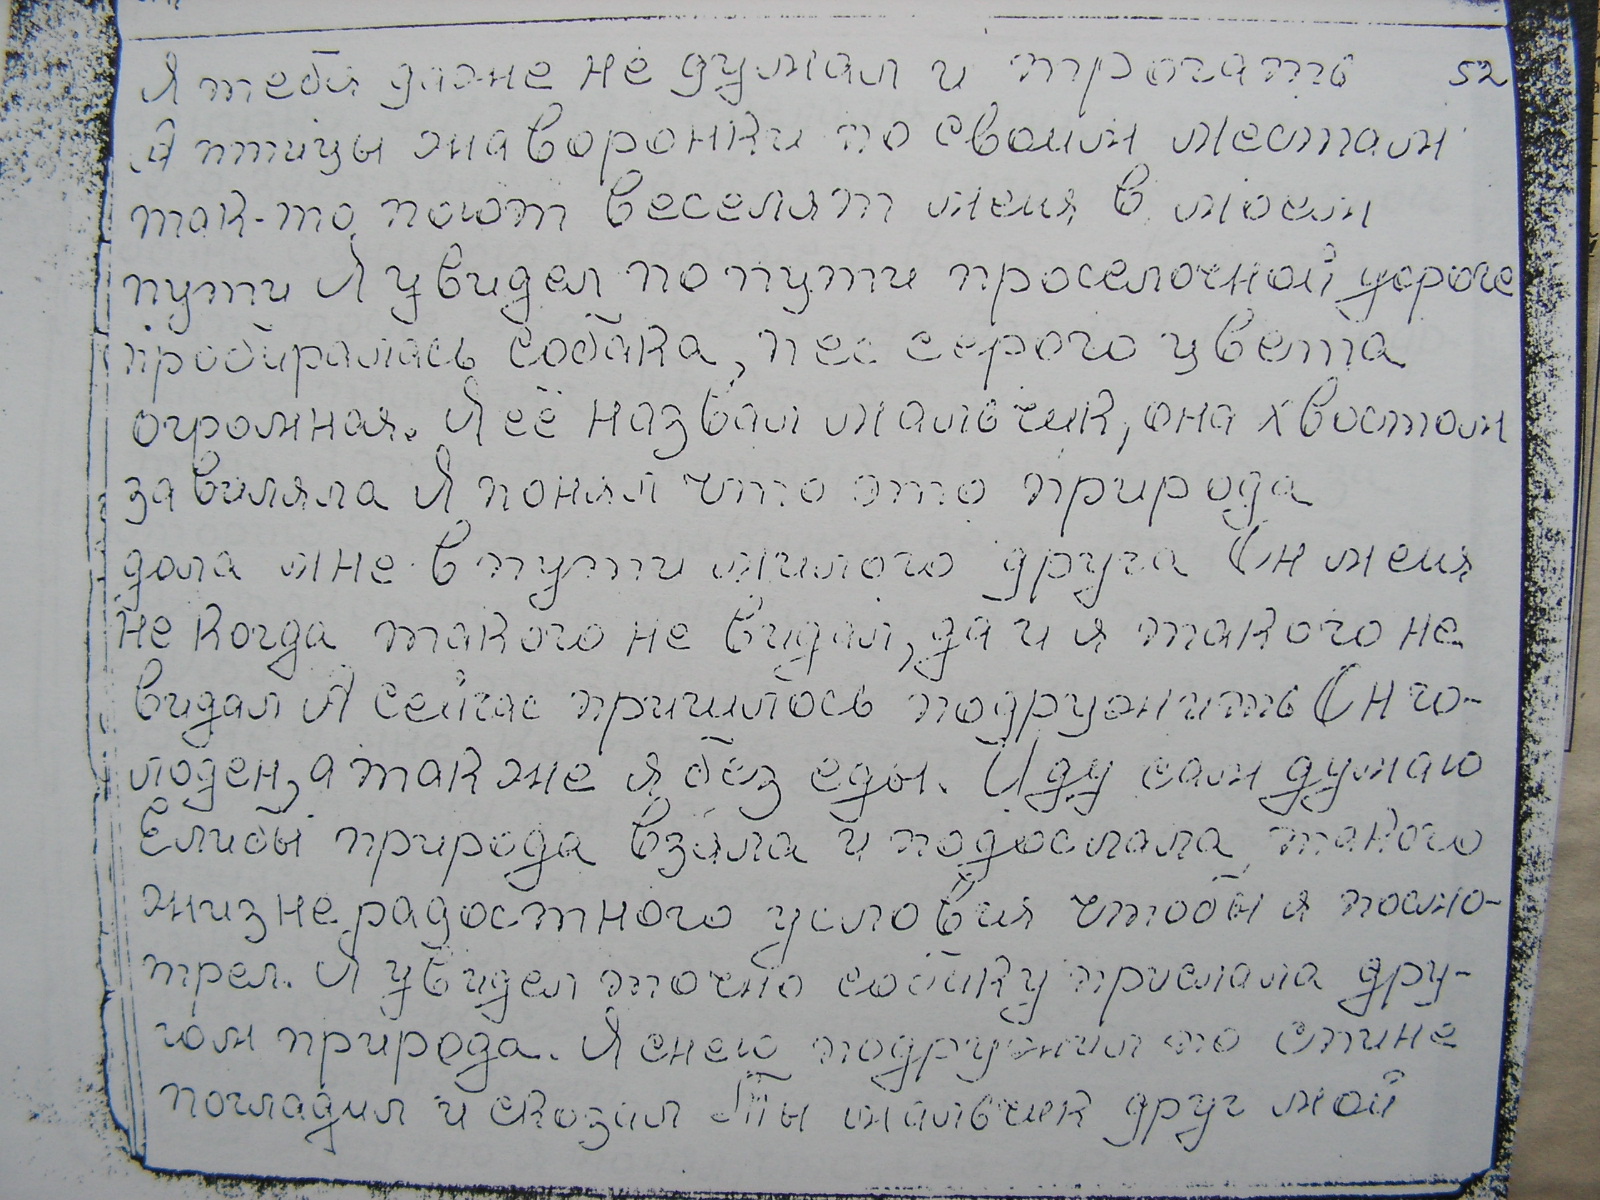 Я тебя даже не думал и трогать 52
А птицы жаворонки по своим местам
так-то поют веселят меня в моем
пути Я увидел по пути проселочной
пробиралась собака, пес серого цвета
огромная. Я её назвал мальчик, она хвостом
завиляла Я понял что это природа
дала мне в пути милого друга Он меня
не когда такого не видал, да и я такого не
видал А сейчас пришлось подружить Он го-
лоден, а так же я без еды. Иду сам думаю
Елибы природа взяла и подослала такого
жизнерадостного условия чтобы я посмо-
трел. Я увидел точно собаку прислала дру-
гом природа. Я снею подружил по спине
погладил и сказал Ты мальчик друг мой